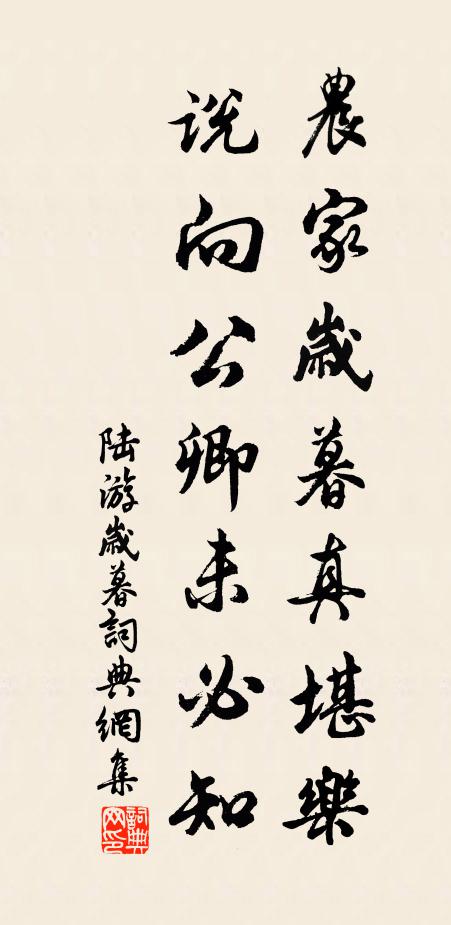 農家歲暮真堪樂
説向公卿未必知
陸游歲暮詞典網集
詞典網印